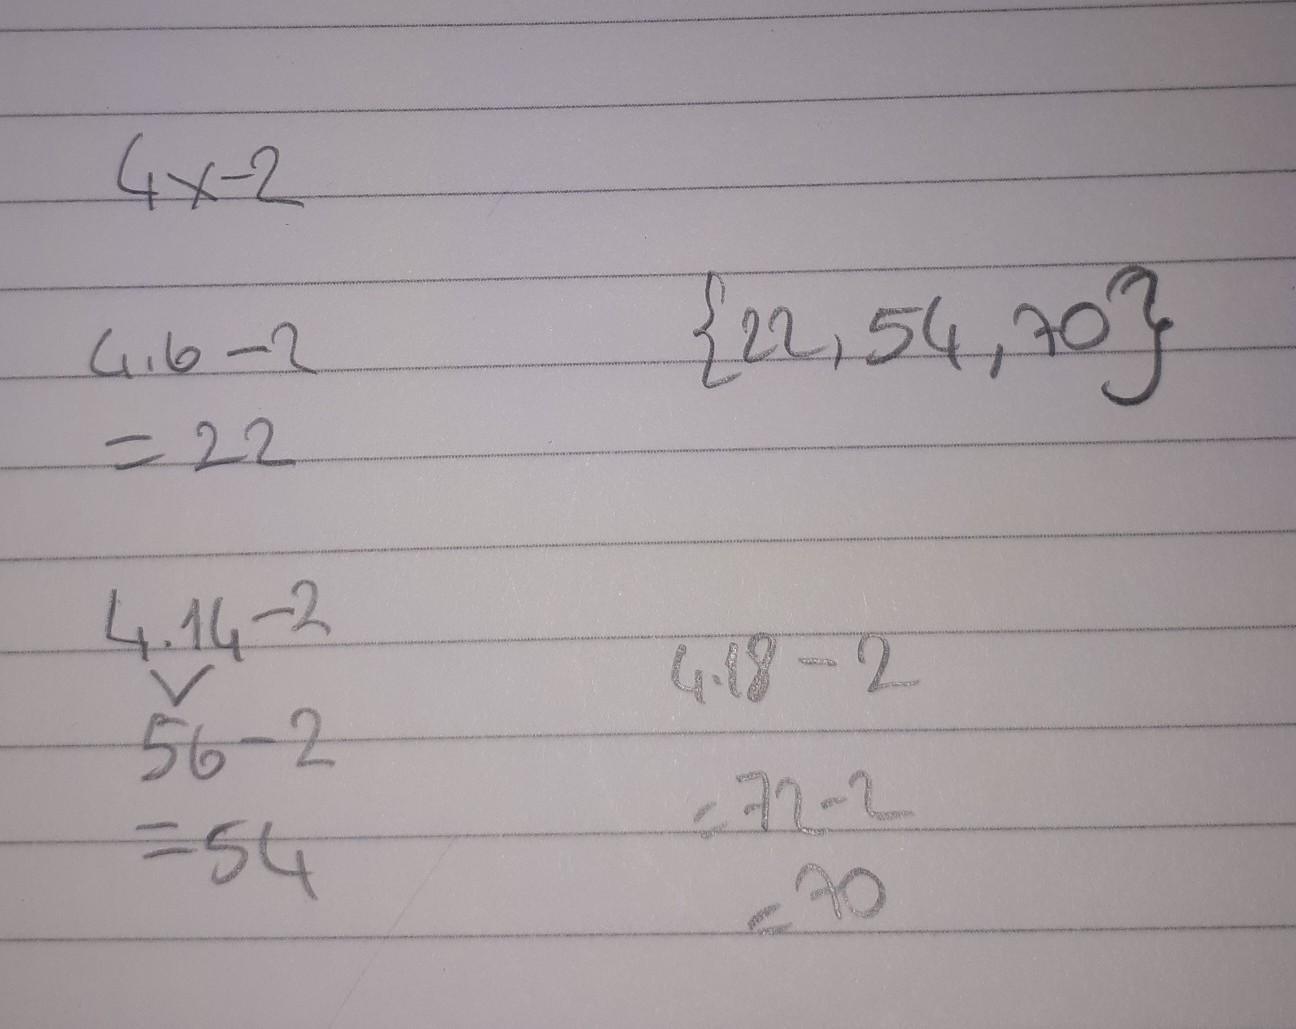 4x-2
4.6-2
= 22
{22, 54, 70}
4.14-2
56-2
= 54
4.18-2
= 72-2
= 70